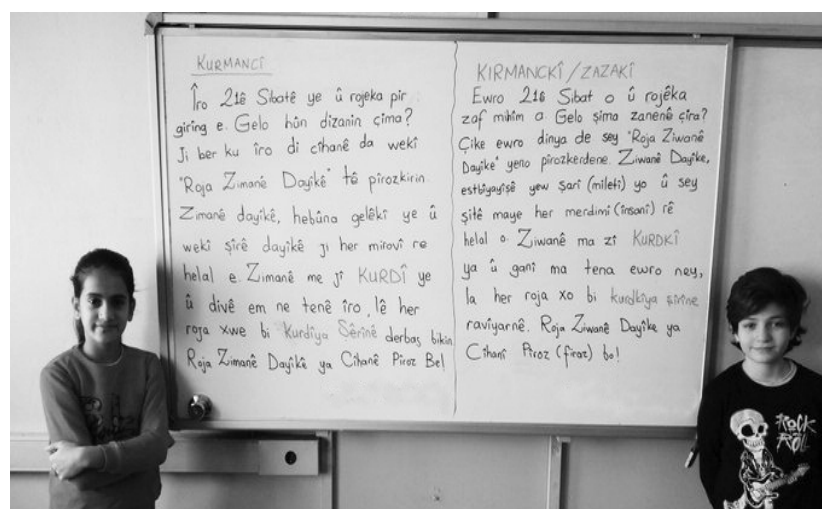 KURMANCÎ
Îro 21ê Sibatê ye û rojeka pir
giring e. Gelo hûn dizanin çima?
Ji ber ku îro di cîhanê da wekî
"Roja Zimanê Dayîkê" tê pîrozkirin.
Zimanê dayîkê, hebûna gelêkî ye û
wekî şîrê dayîkê ji her mirovî re
helal e. Zimanê me jî KURDÎ ye
û divê em ne tenê îro, lê her
roja xwe bi Kurdîya Şêrînê derbas bikin.
Roja Zimanê Dayîkê ya Cîhanê Pîroz Be!
KIRMANCKÎ/ZAZAKÎ
Ewro 21ê Sibat o û rojêka
zaf mihîm a Gelo şima zanenê çira?
Çike ewro dinya de sey "Roja Ziwanê
Dayîke" yeno pîrozkerdene. Ziwanê Dayîke,
estbîyayîşê yew şarî (miletî) yo û sey
şitê maye her merdimî (însanî) rê
helal o. Ziwanê ma zî KURDKÎ
ya û ganî ma tena ewro ney,
la her roja xo bi kurdkîya şîrîne
ravîyarnê. Roja Ziwanê Dayîke ya
Cîhanî Pîroz (fîraz) bo!
ROCK
ROLL